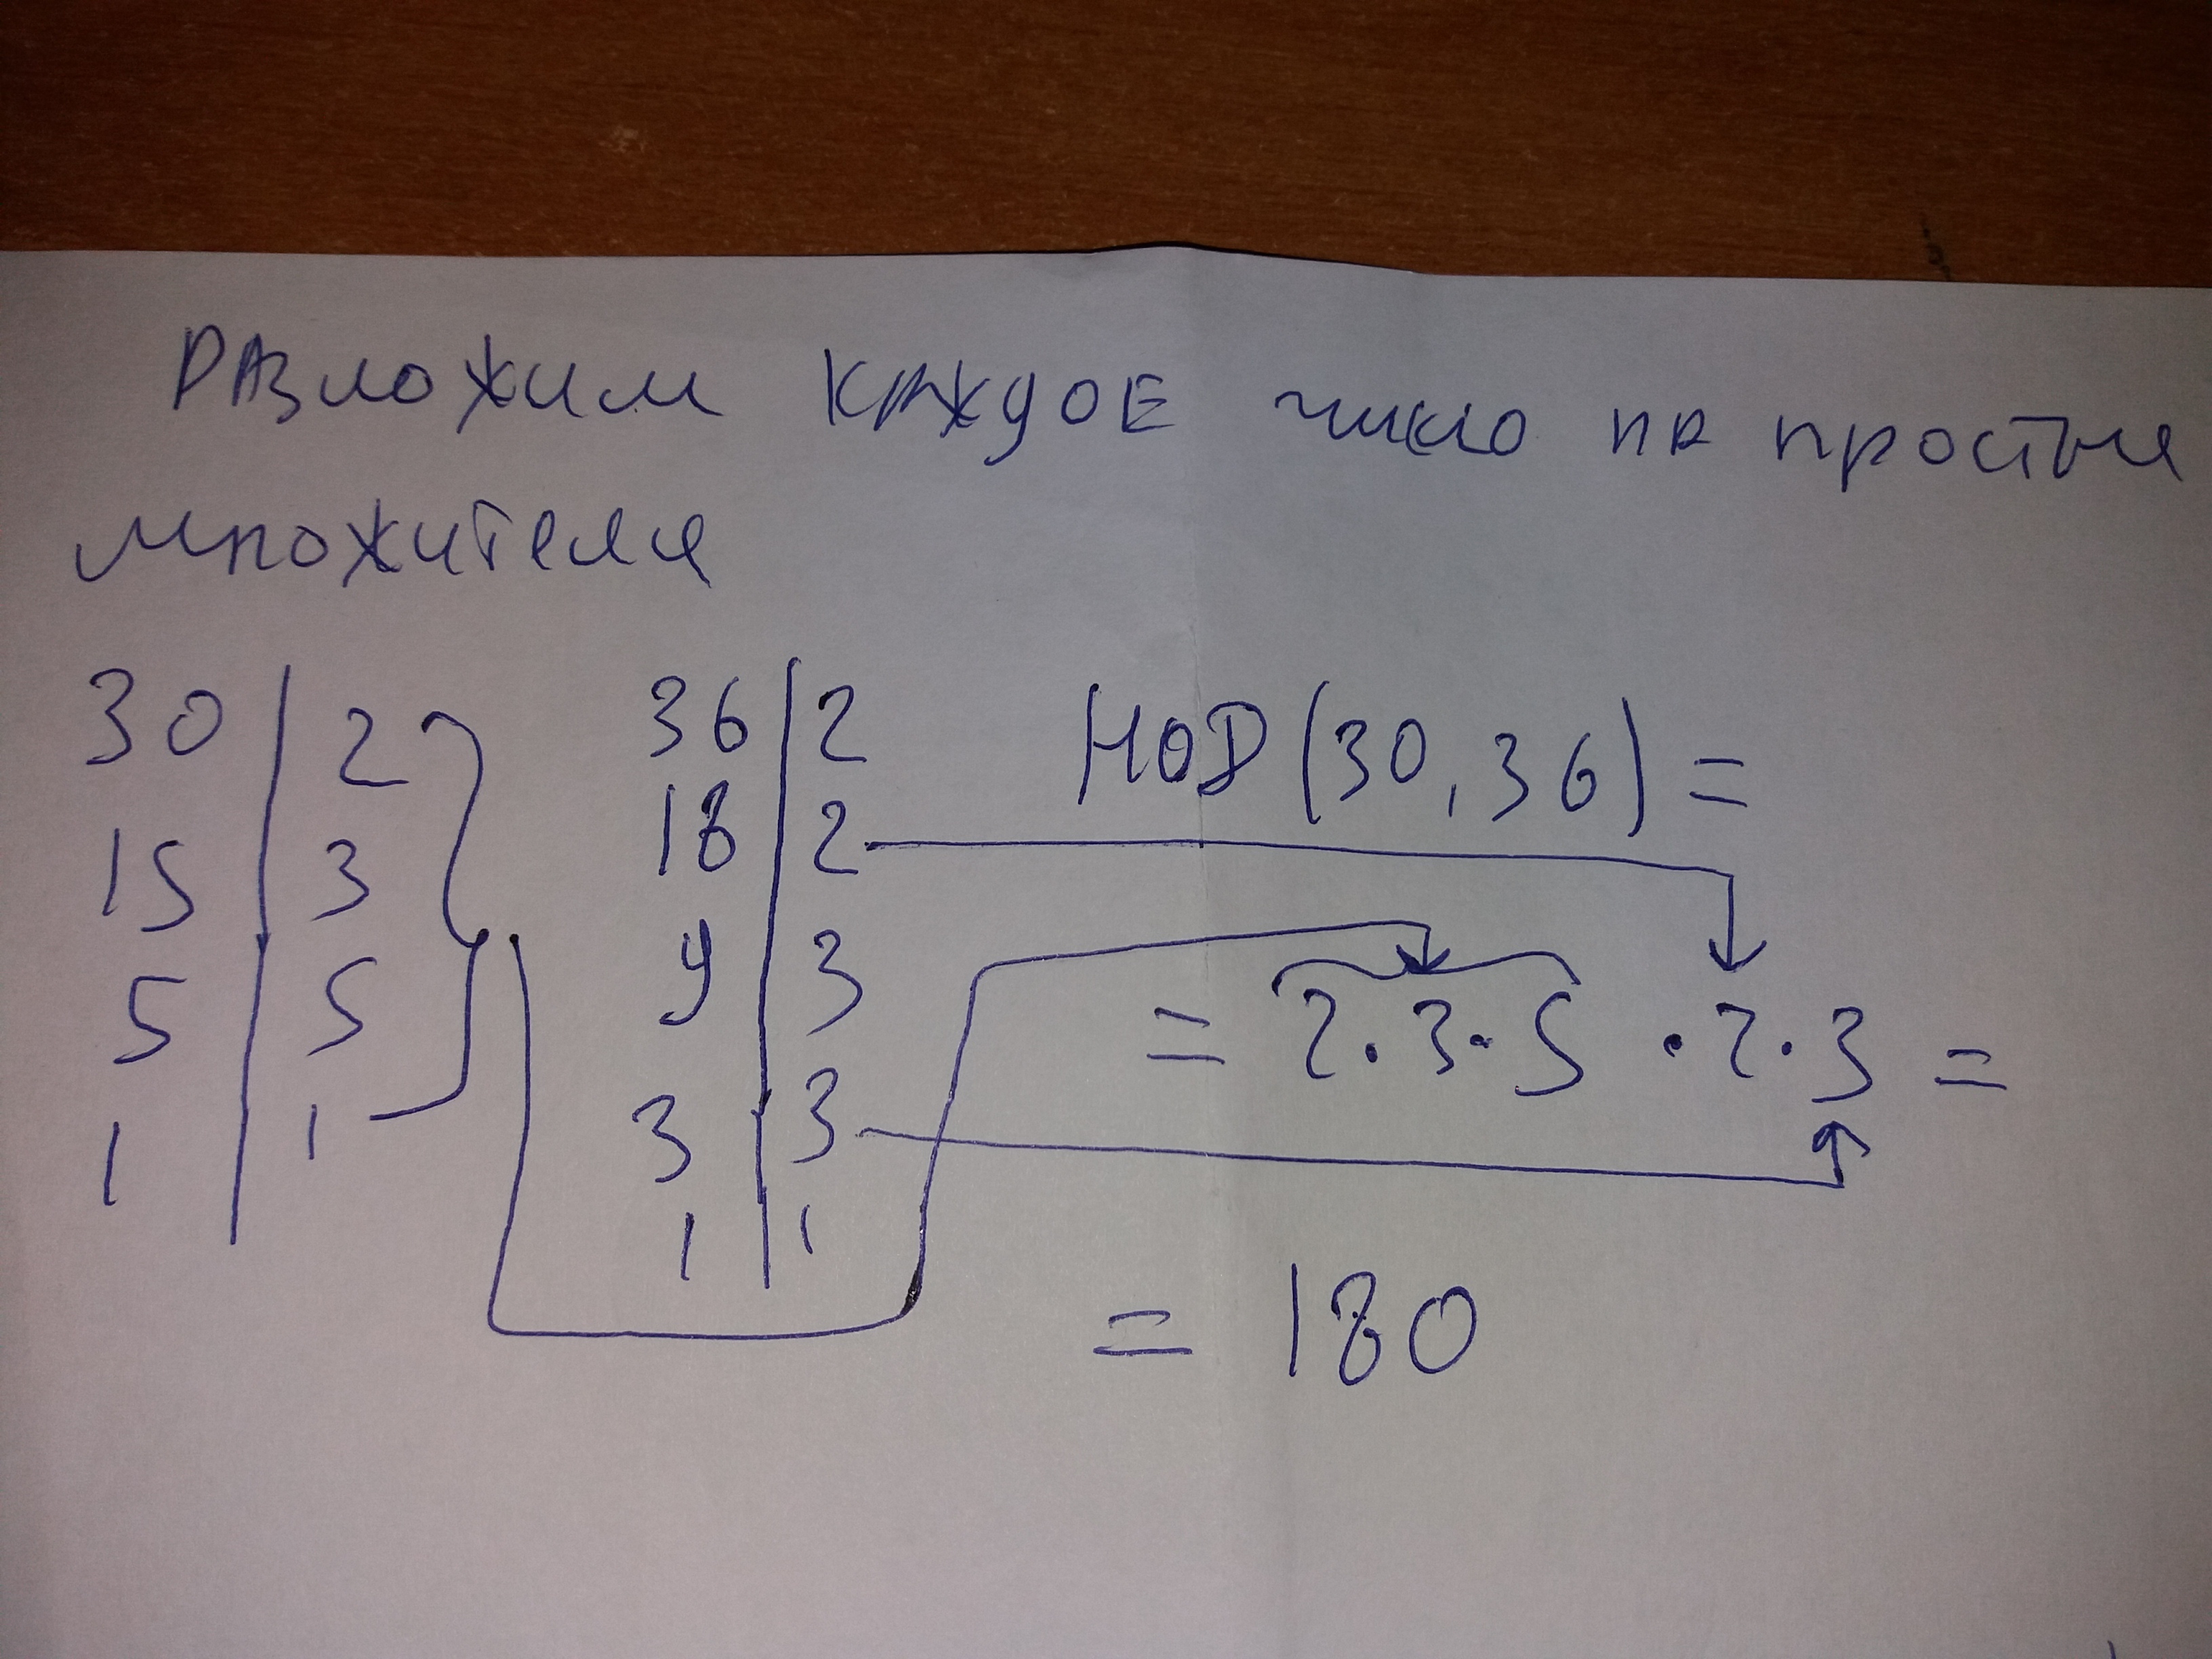 Разложим каждое число на простые
множители
30 | 2
15 | 3
5 | 5
1 | 1
36 | 2
18 | 2
9 | 3
3 | 3
1 | 1
НОД (30, 36) =
= 2 · 3 · 5 · 2 · 3 =
= 180